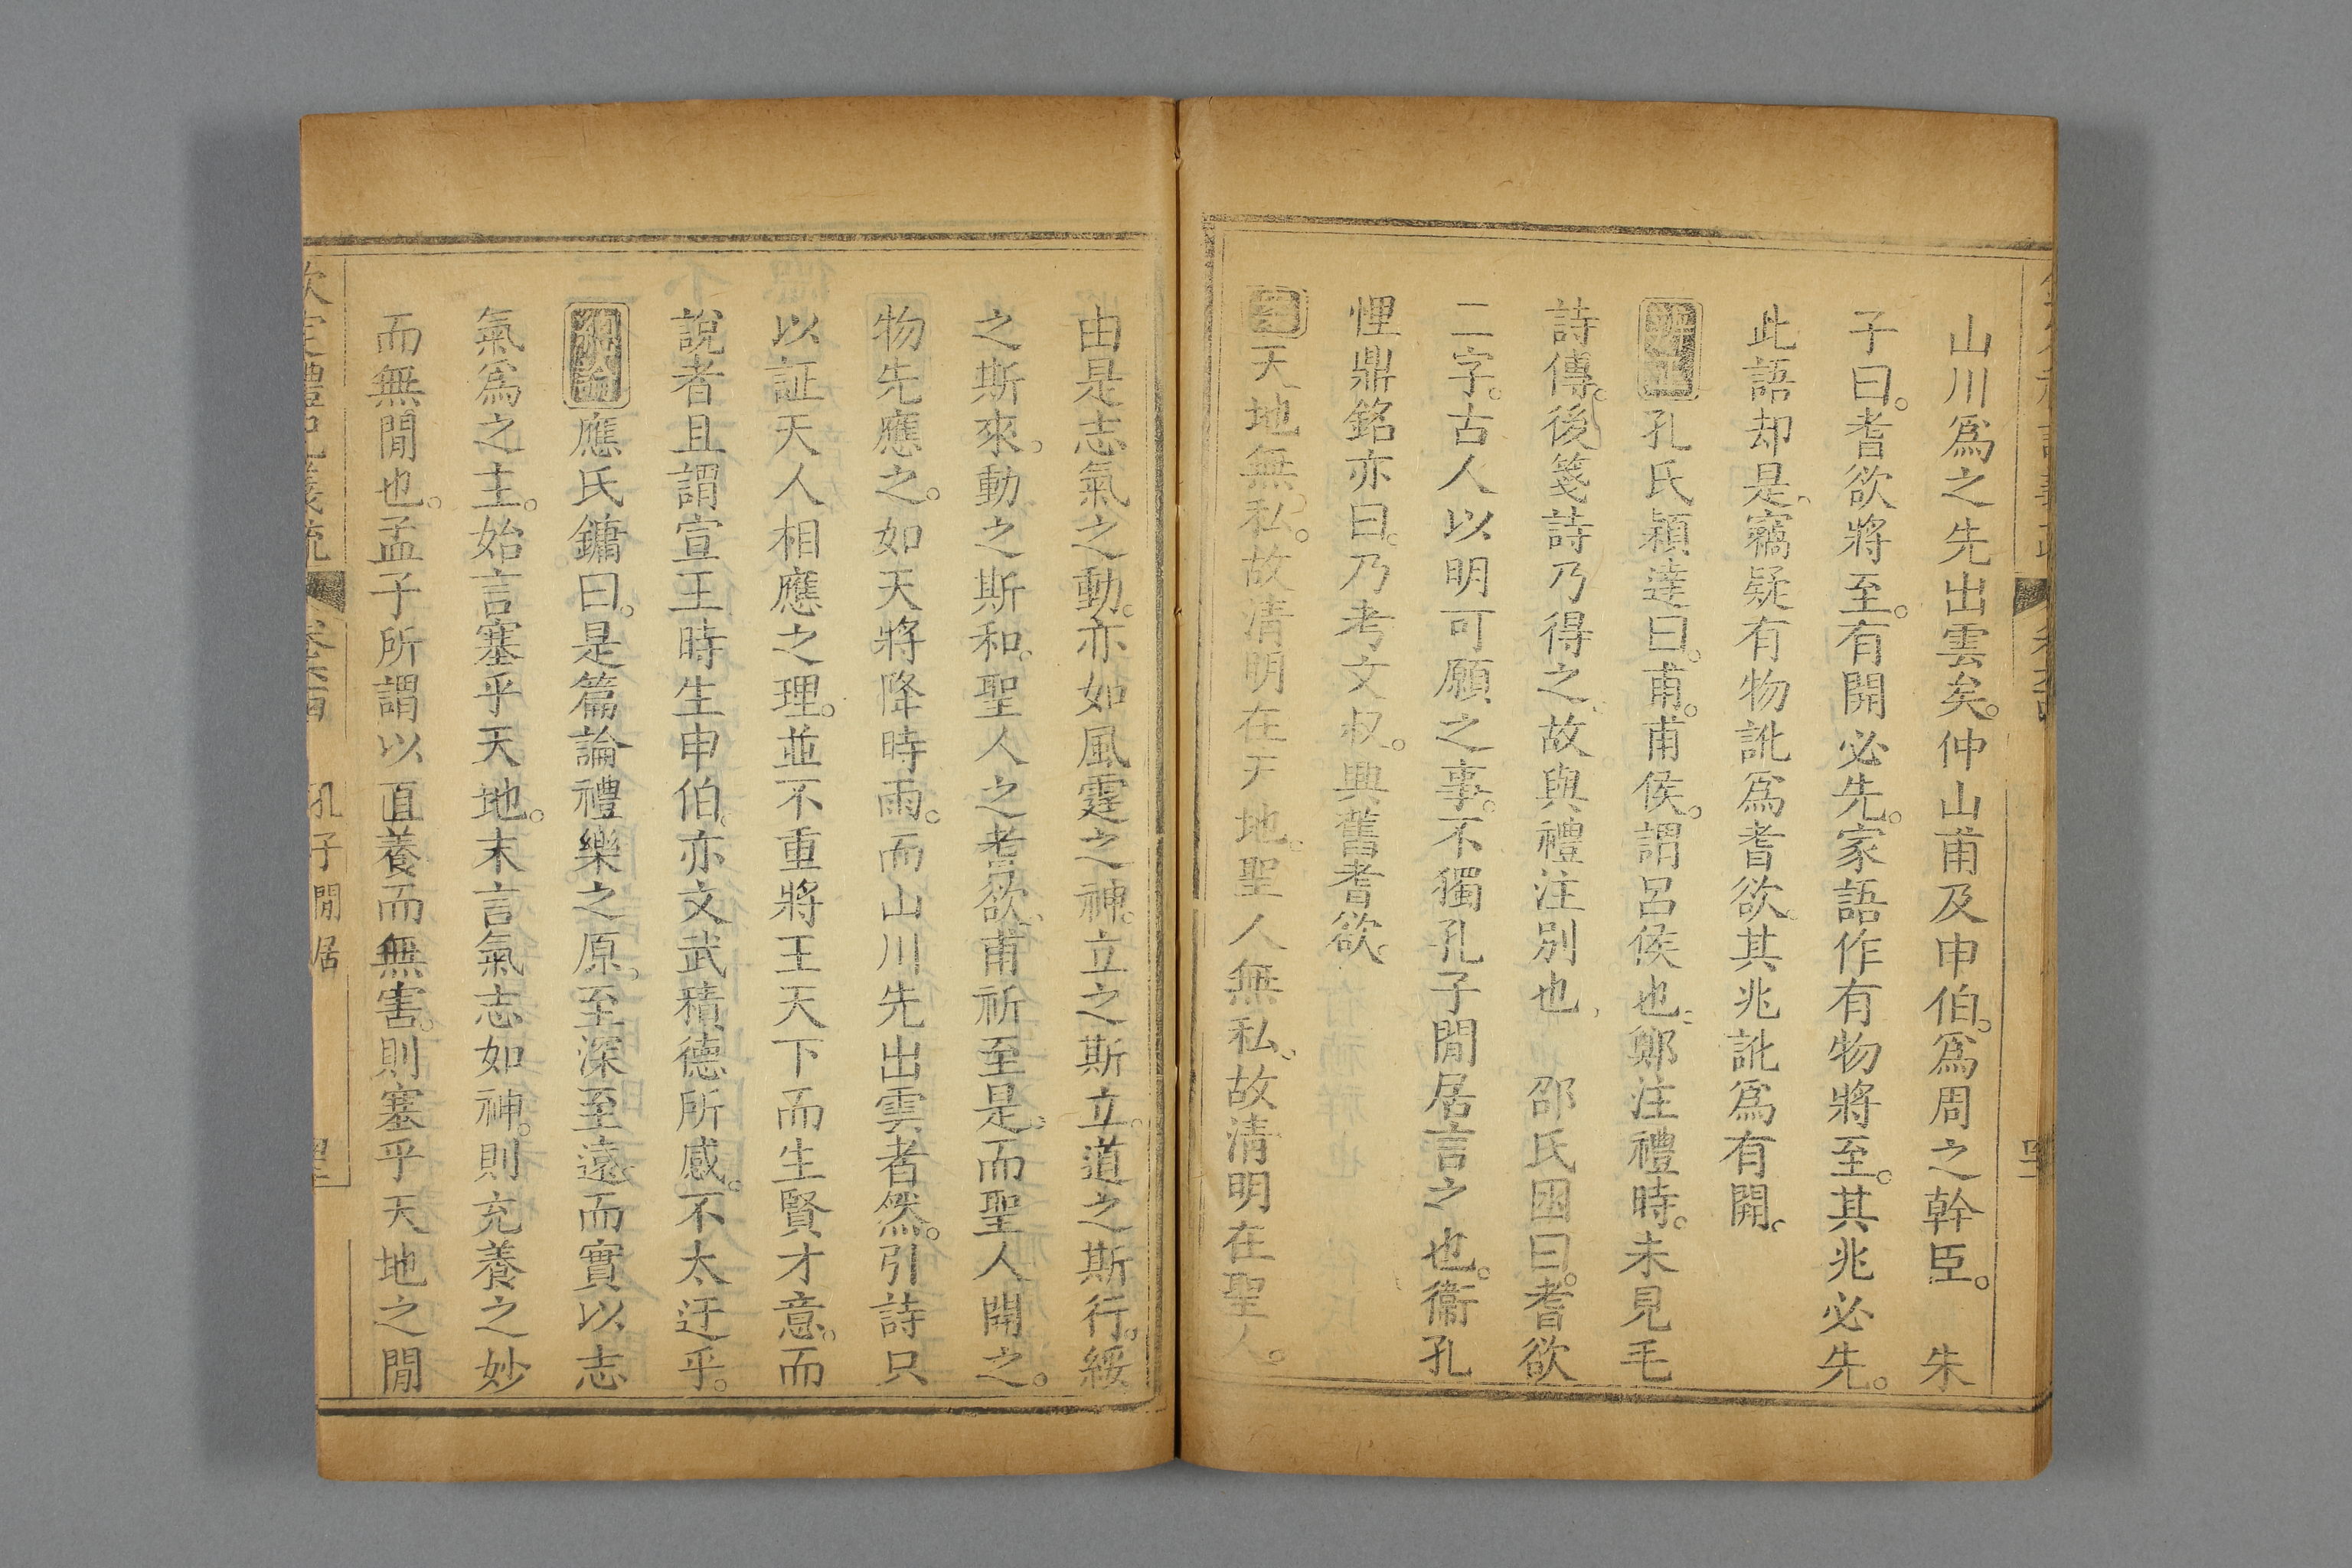 山川爲之先出雲矣。仲山甫及申伯。爲周之幹臣。　朱
子曰。耆欲將至。有開必先。家語作有物將至。其兆必先。
此語却是。竊疑有物訛爲耆欲。其兆訛爲有開。
孔氏穎達曰。甫。甫侯。謂呂侯也。鄭注禮時。未見毛
詩傳。後箋詩乃得之。故與禮注別也。　邵氏囦曰。耆欲
二字。古人以明可願之事。不獨孔子閒居言之也。衞孔
悝鼎銘亦曰。乃考文叔。興舊耆欲。
天地無私。故清明在天地。聖人無私。故清明在聖人。
由是志氣之動。亦如風霆之神。立之斯立。道之斯行。綏
之斯來。動之斯和。聖人之耆欲。甫祈至是。而聖人開之。
物先應之。如天將降時雨。而山川先出雲者然。引詩只
以証天人相應之理。並不重將王天下而生賢才意。而
說者且謂宣王時生申伯。亦文武積德所感。不太迂乎。
總論應氏鏞曰。是篇論禮樂之原。至深至遠。而實以志
氣爲之主。始言塞乎天地。末言氣志如神。則充養之妙
而無閒也。孟子所謂以直養而無害。則塞乎天地之閒
欽定禮記義疏　卷六十四　孔子閒居